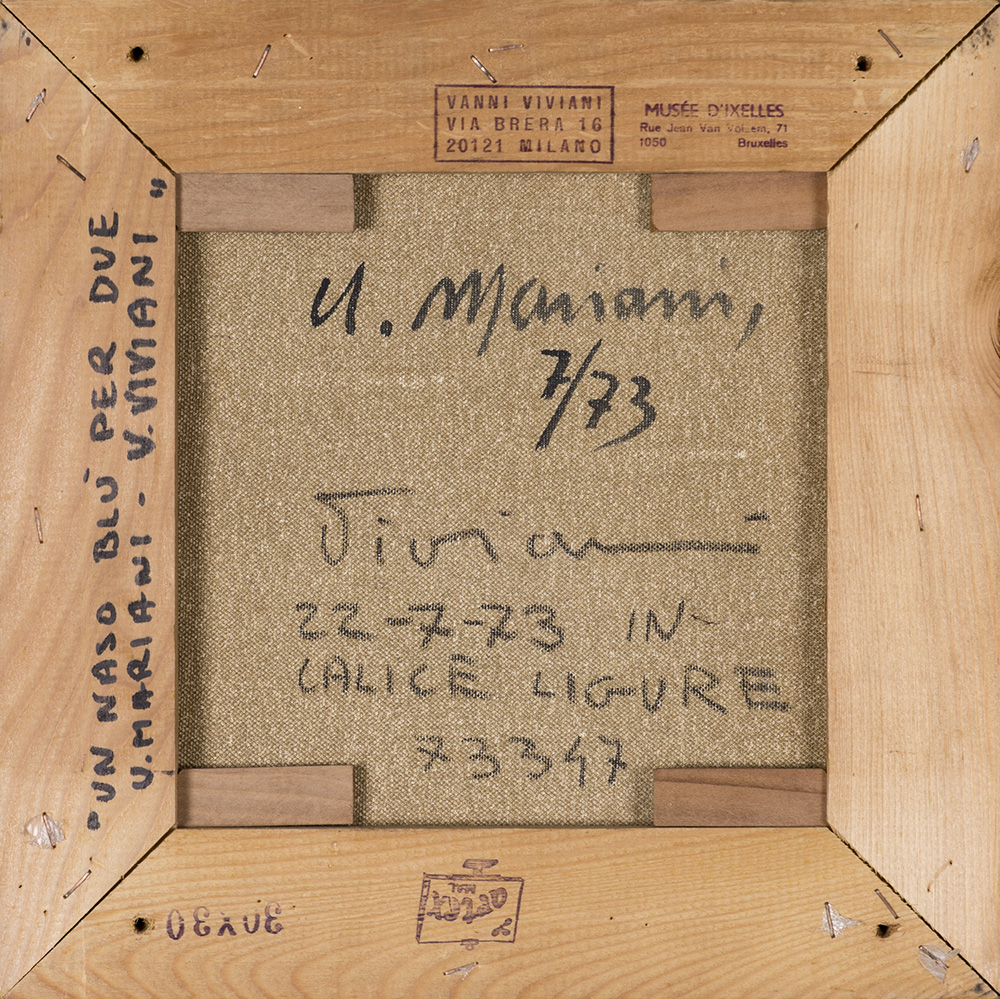 VANNI VIVIANI
VIA BRERA 16
20121 MILANO
MUSÉE D'IXELLES
Rue Jean Van Volsem, 71
1050 Bruxelles
"UN NASO BLÙ PER DUE
U. MARIANI - V. VIVIANI"
U. Mariani,
7/73
Viviani
22-7-73 IN
CALICE LIGURE
73347
30X30